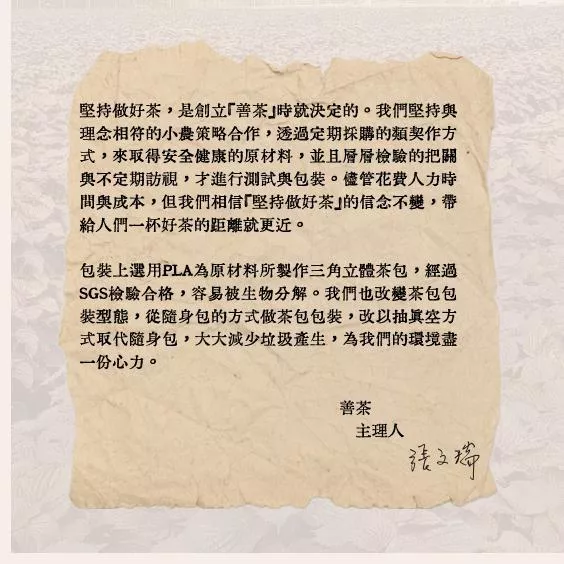 堅持做好茶，是創立『善茶』時就決定的。我們堅持與
理念相符的小農策略合作，透過定期採購的類契作方
式，來取得安全健康的原材料，並且層層檢驗的把關
與不定期訪視，才進行測試與包裝。儘管花費人力時
間與成本，但我們相信『堅持做好茶』的信念不變，帶
給人們一杯好茶的距離就更近。
包裝上選用PLA為原材料所製作三角立體茶包，經過
SGS檢驗合格，容易被生物分解。我們也改變茶包包
裝型態，從隨身包的方式做茶包包裝，改以抽真空方
式取代隨身包，大大減少垃圾產生，為我們的環境盡
一份心力。
善茶
主理人
張文瑞